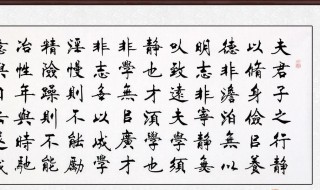 夫君子之行靜
以脩身儉以養
德非澹泊無以
明志非寧靜無
以致遠夫學須
靜也才須學也
非學無以廣才
非志無以成學
淫慢則不能勵
精險躁則不能
冶性年與時馳
意與日去遂成